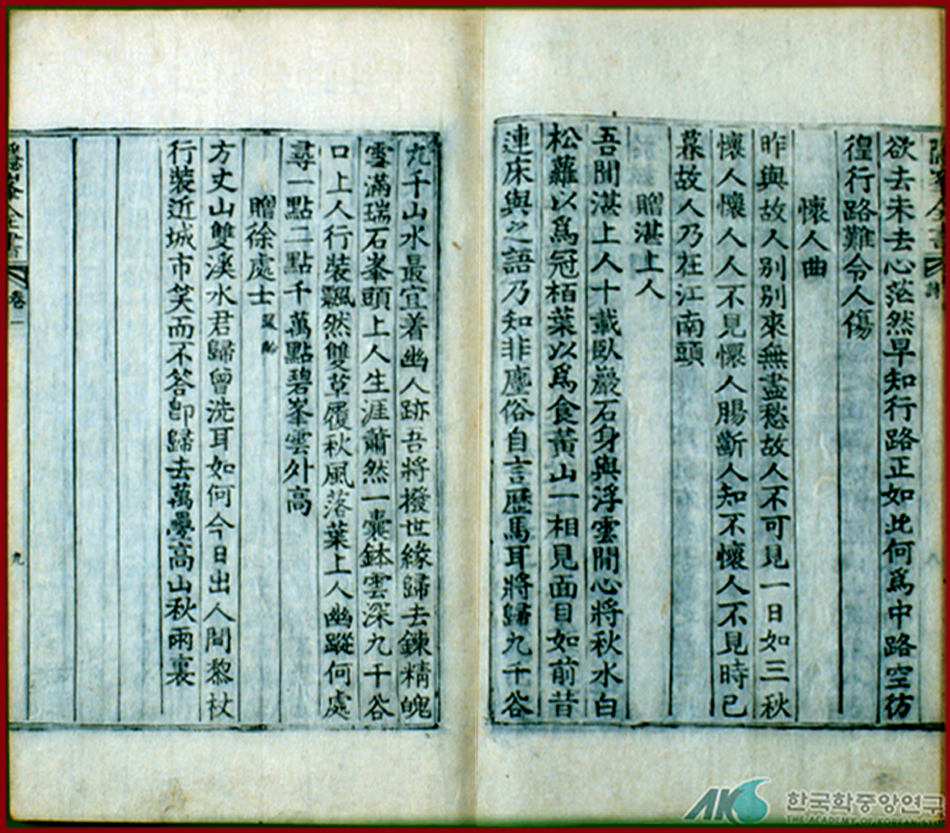 峯全書
欲去未去心茫然早知行路正如此何爲中路空彷
徨行路難令人傷
懷人曲
昨與故人別別來無盡愁故人不可見一日如三秋
懷人懷人人不見懷人腸斷人知不懷人不見時已
暮故人乃在江南頭
贈湛上人
吾聞湛上人十載臥巖石身與浮雲閒心將秋水白
松蘿以爲冠栢葉以爲食黃山一相見面目如前昔
連床與之語乃知非塵俗自言歷馬耳將歸九千谷
九千山水最宜着幽人跡吾將撥世緣歸去鍊精魄
雪滿瑞石峯頭上人生涯蕭然一囊鉢雲深九千谷
口上人行裝飄然雙草履秋風落葉上人幽蹤何處
尋一點二點千萬點碧峯雲外高
贈徐處士
方丈山雙溪水君歸曾洗耳如何今日出人間黎杖
行裝近城市笑而不答卽歸去萬疊高山秋雨裏
峯全書 卷一 九
AKS 한국학중앙연구
THE ACADEMY OF KOREAN STU